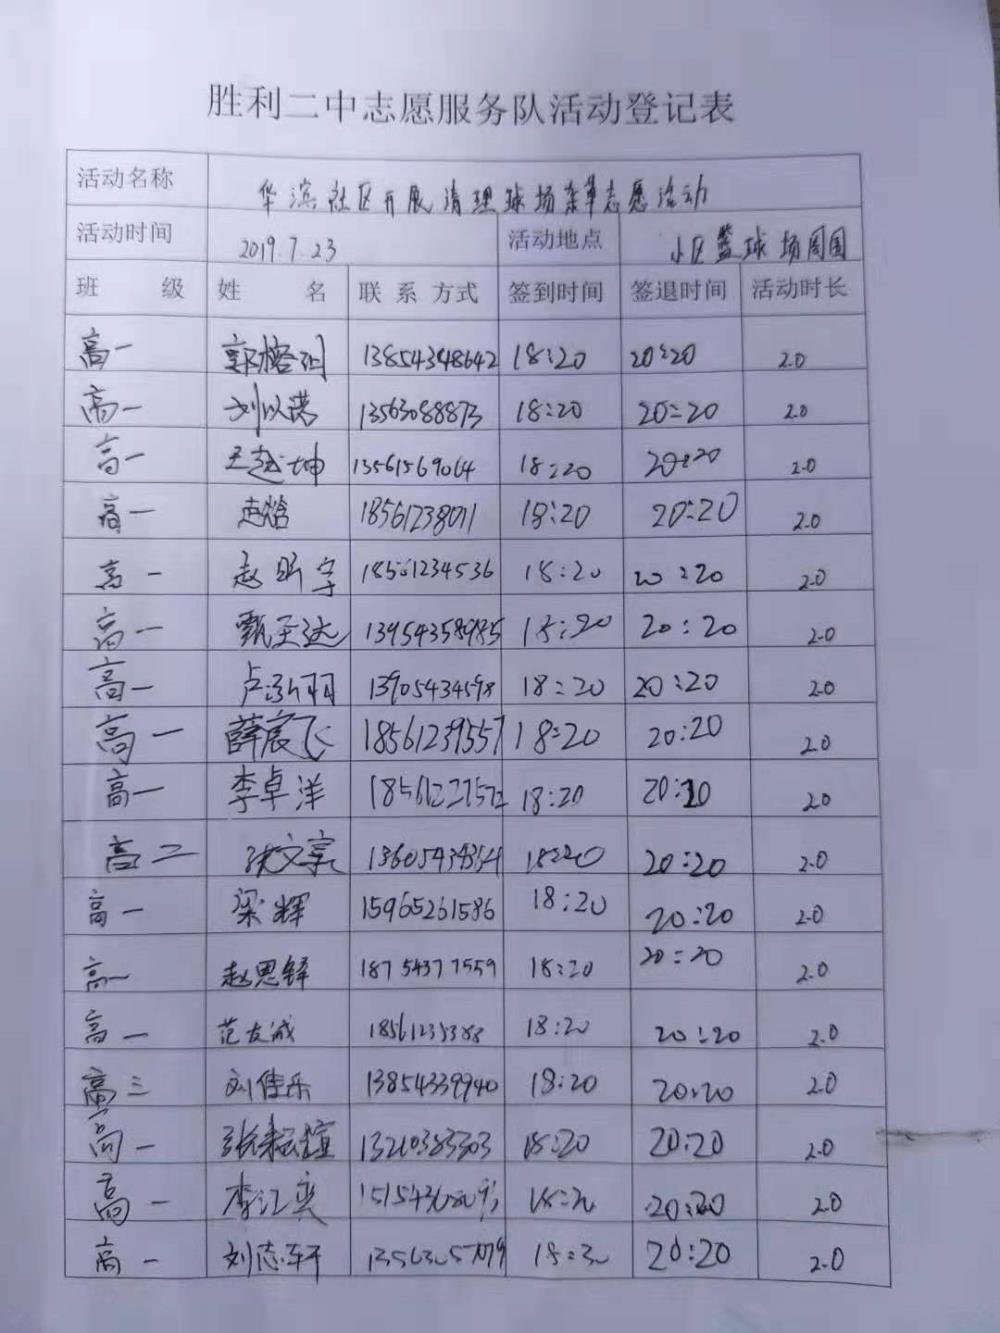 胜利二中志愿服务队活动登记表
活动名称 华滨社区开展清理球场杂草志愿活动
活动时间 2019.7.23 活动地点 小区篮球场周围
班 级 姓 名 联系方式 签到时间 签退时间 活动时长
高一 13854348642 18:20 20:20 2.0
高一 刘以诺 13563088873 18:20 20:20 2.0
高一 王越坤 13561569064 18:20 20:20 2.0
高一 18561238011 18:20 20:20 2.0
高一 赵昕宇 18561234536 18:20 20:20 2.0
高一 甄至达 13954358985 18:20 20:20 2.0
高一 13905434598 18:20 20:20 2.0
高一 薛宸飞 18561239557 18:20 20:20 2.0
高一 李卓洋 18:20 20:20 2.0
高二 18:20 20:20 2.0
高一 梁辉 15965261586 18:20 20:20 2.0
高一 赵思铎 18754377559 18:20 20:20 2.0
高一 范友诚 18561235388 18:20 20:20 2.0
高三 刘佳乐 13854339940 18:20 20:20 2.0
高一 13210383303 18:20 20:20 2.0
高一 李江奕 18:20 20:20 2.0
高一 刘志轩 20:20 2.0